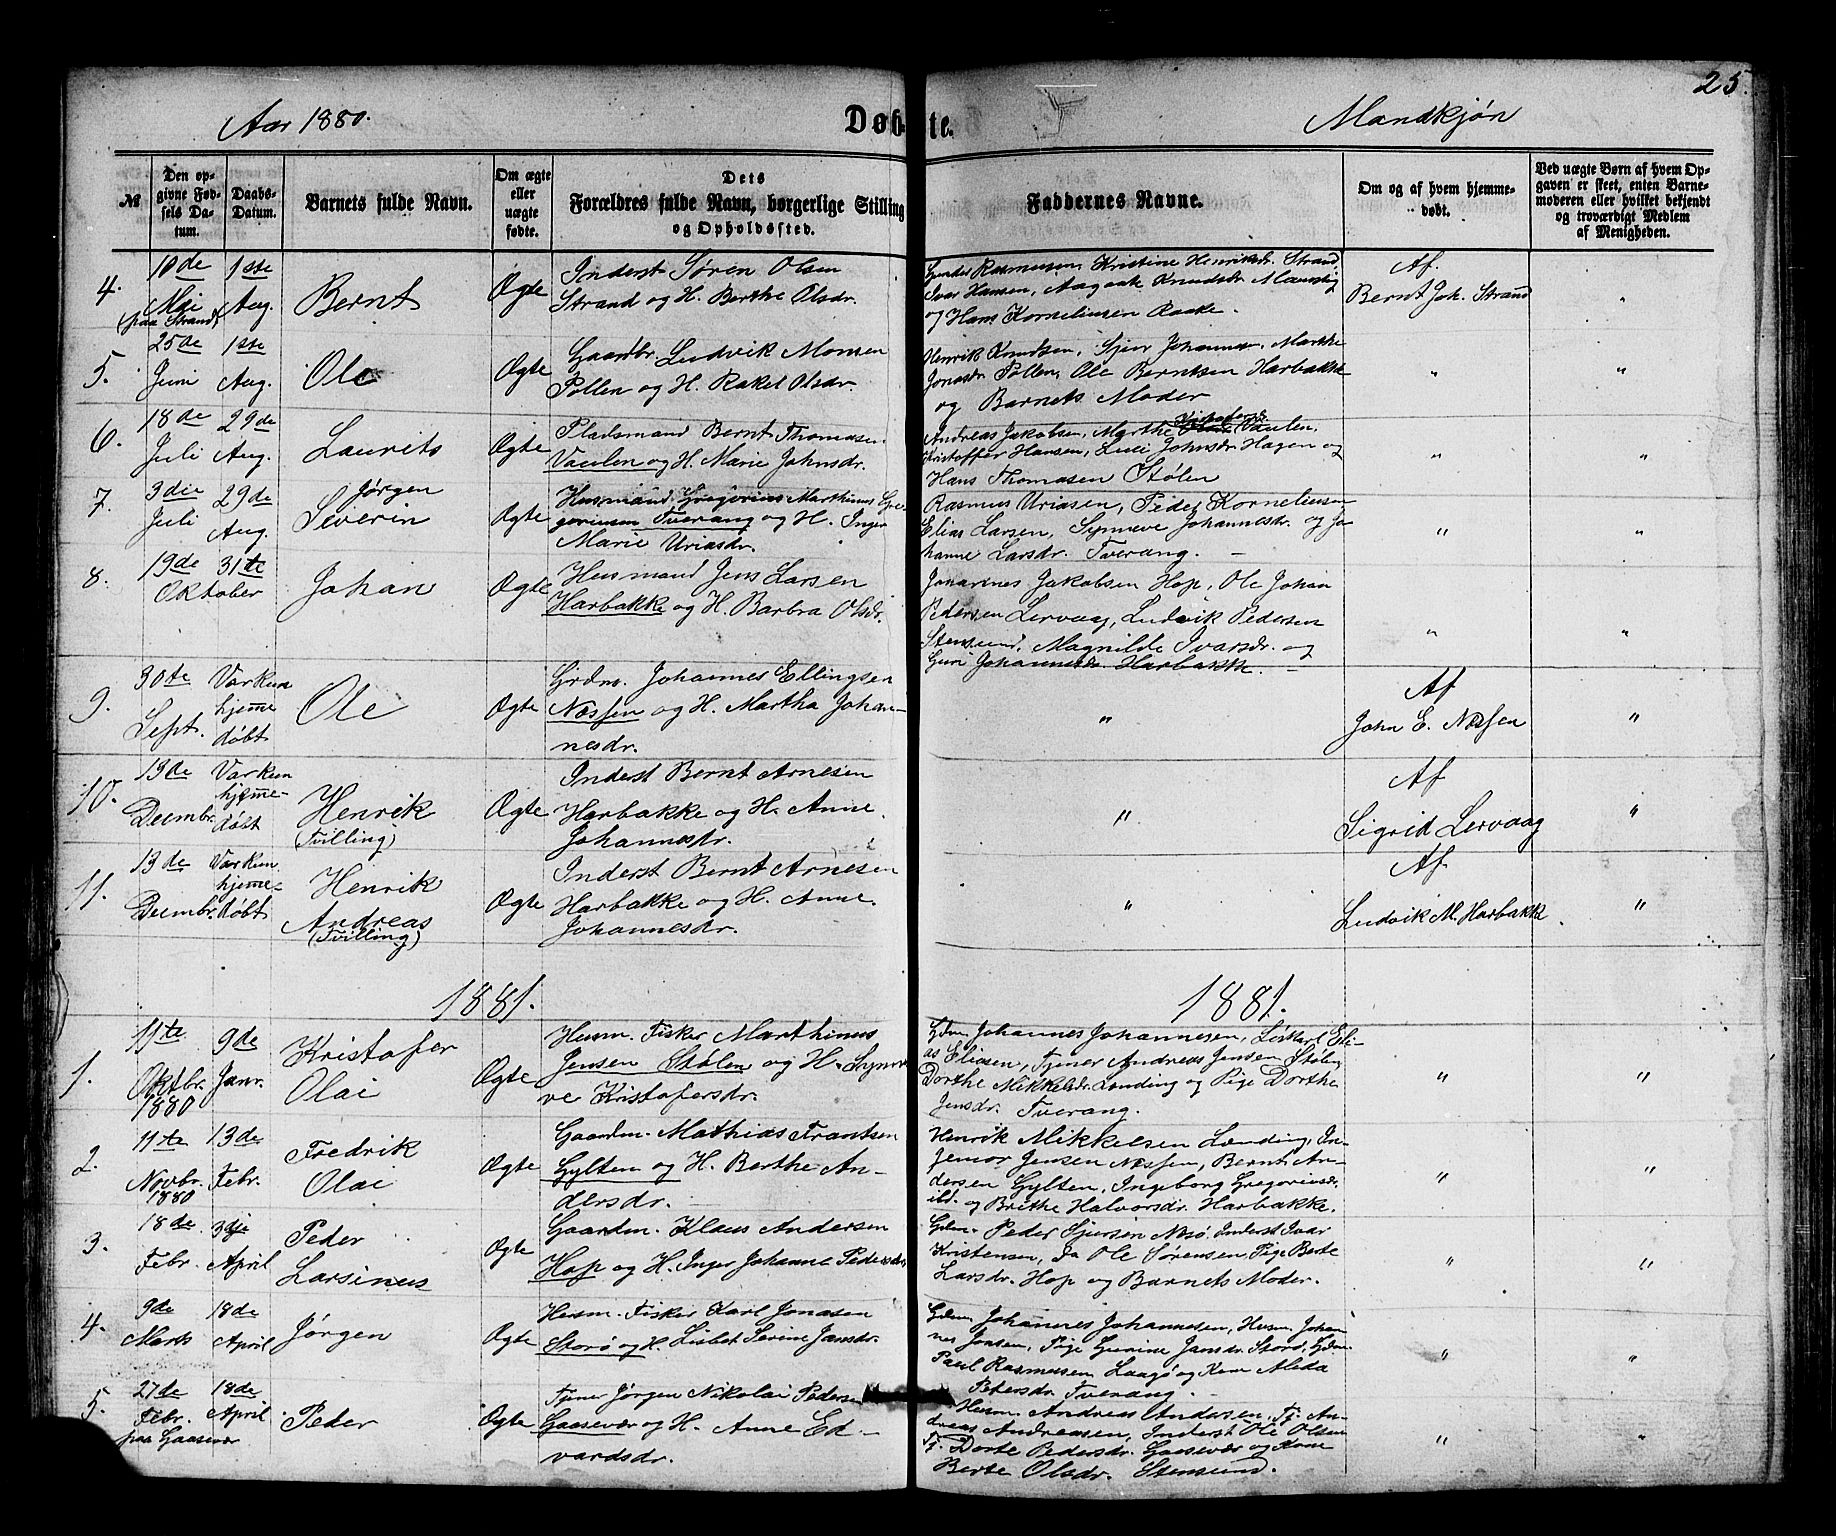 25.
Aar 1880.
Døbte.
Mandkjøn
№
Den opgivne Fødsels Datum.
Daabs-Datum.
Barnets fulde Navn.
Om ægte eller uægte fødte.
Dets Forældres fulde Navn, borgerlige Stilling og Opholdssted.
Faddernes Navne.
Om og af hvem hjemmedøbt.
Ved uægte Børn af hvem Opgaven er skeet, enten Barnemoderen eller hvilket bekjendt og troværdigt Medlem af Menigheden.
4.
10de Mai (paa Strand)
1ste Aug.
Bernt
Ægte
Inderst Søren Olsen
Strand og H. Berthe Olsdr.
Rasmussen, Kristine Henriksdr. Strand,
Ivar Hansen, Aagaate Knudsdr.
og Hans Korneliussen Raake.
Af
Bernt Joh. Strand
"
5.
25de Juni
1ste Aug.
Ole
Ægte
Gaardbr. Ludvik Monsen
Pollen og H. Rakel Olsdr.
Henrik Knudsen, Sjur Johannes. Marthe
Jonasdr. Pollen, Ole Berntsen Harbakke
og Barnets Moder
"
"
6.
18de Juli
29de Aug.
Laurits
Ægte
Pladsmand Bernt Thomasen
Vaulen og H. Marie Johnsdr.
Andreas Jakobsen, Marthe Vaulen,
Kristoffer Hansen, Johnsdr. Hagen og
Hans Thomasen Stølen
"
"
7.
3die Juli
29de Aug.
Jørgen
Severin
Ægte
Husmand Gregorius Marthinus Gre-
goriusen Tverang og H. Inger
Marie Uriasdr.
Rasmus Uriasen, Peder Korneliusen
Elias Larsen, Synneve Johannesdr. og Jo-
hanne Larsdr. Tverang.
"
"
8.
19de
31te
Oktober
Johan
Ægte
Husmand Jens Larsen
Harbakke og H. Barbra Olsdr.
Johannes Jakobsen Hop, Ole Johan
Pedersen Lervaag, Ludvik Pedersen
Stensund, Magnilde Ivarsdr. og
Guri Johannesdr. Harbakke.
"
"
9.
30te Sept.
Var kun hjemmedøbt
Ole
Ægte
Grdm. Johannes Ellingsen
Næssen og H. Martha Johan-
nesdr.
"
Af
John E. Næssen
"
10.
13de Decmbr.
Var kun hjemme-døbt
Henrik
(Tvilling)
Ægte
Inderst Bernt Arnesen
Harbakke og H. Anne
Johannesdr.
"
Af
Sigrid Lervaag
"
11.
13de Decmbr.
Var kun hjemme-døbt
Henrik
Andreas
(Tvilling)
Ægte
Inderst Bernt Arnesen
Harbakke og H. Anne
Johannesdr.
"
Af
Ludvik M. Harbakke
"
1881.
1881.
1.
11te Oktbr. 1880
9de Janr.
Kristofer
Olai
Ægte
Husm. Fisker Marthinus
Jensen Stølen og H. Synne-
ve Kristofersdr.
Gdm. Johannes Johannesen, Løskarl Eli-
as Eliasen, Tjener Andreas Jensen Stølen
Dorthe Mikkelsdr. Lending og Pige Dorthe
Jensdr. Tverang.
"
"
2.
11te Novbr. 1880
13de Febr.
Fredrik
Olai
Ægte
Gaardm. Mathias Frantsen
Gylten og H. Berthe An-
dersdr.
Henrik Mikkelsen Lending, In-
Jensen Næssen, Bernt An-
dersen Gylten, Ingeborg Gregoriusdr.
ibd. og Brithe Halvorsdr. Harbakke.
"
"
3.
18de Febr.
3dje April
Peder
Larsinus
Ægte
Gaardm. Klaus Andersen
Hop og H. Inger Johanne Pedersdr.
Gdm. Peder Sjursen Nesø, Inderst Ivar
Kristensen, Do Ole Sørensen, Pige Berte
Larsdr. Hop og Barnets Moder.
"
"
4.
9de Marts
18de April
Jørgen
Ægte
Husm. Fisker Karl Jonasen
Storø og H. Lisbet Serine Jansdr.
Gdm. Johannes Johannesen, Husm. Johan-
nes Jonsen, Pige Gurine Jansdr. Storø, Gdm.
Paul Rasmussen Laagø og Kone Alida
Petersdr. Tverang.
"
"
5.
27de Febr. paa Gaasevær
18de April
Peder
Ægte
Tjener Jørgen Nikolai Peders.
Gaasevær og H. Anne Ed-
vardsdr.
Husm. Andreas Andersen, Tj. An-
dreas Andreasen, Inderst Ole Olsen
Tj. Dorte Pedersdr. Gaasevær og Kone
Berte Olsdr. Stensund.
"
"